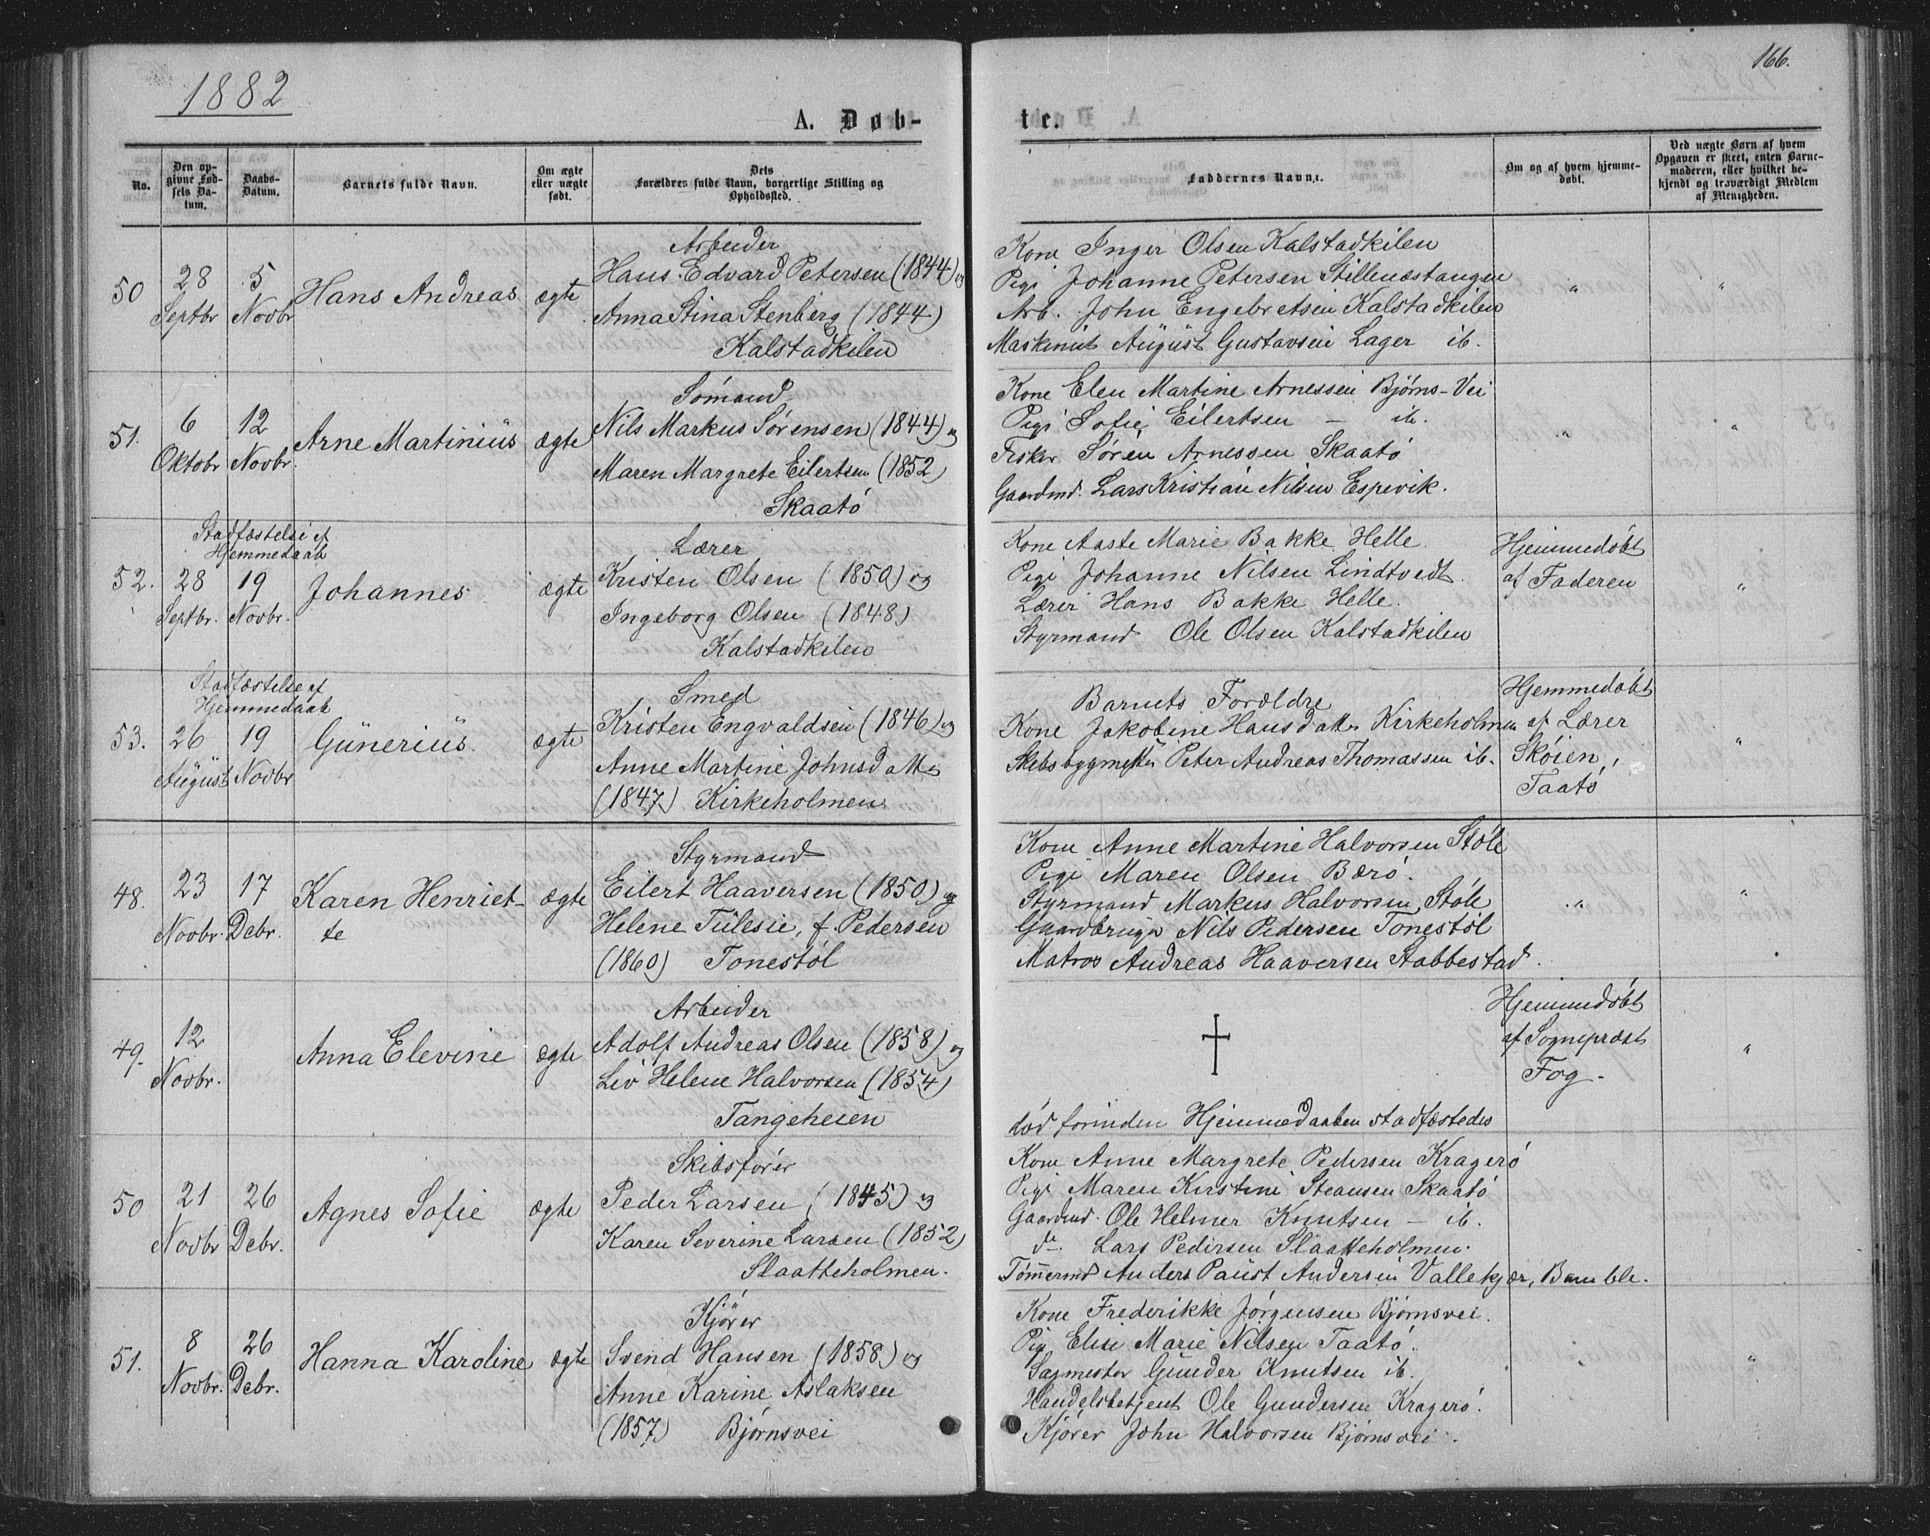 1882
166.
A. Døb-
te.
No.
Den op-
givne Fød-
sels Da-
tum.
Daabs-
Datum.
Barnets fulde Navn.
Om ægte
eller uægte
født.
Dets
Forældres fulde Navn, borgerlige Stilling og
Opholdssted.
Faddernes Navne.
Om og af hvem hjemme-
døbt.
Ved uægte Børn af hvem
Opgaven er skeet, enten Barne-
moderen, eller hvilket be-
kjendt og troværdigt Medlem
af Menigheden.
50
28
Septbr
5
Novbr
Hans Andreas
ægte
Arbeider
Hans Edvard Petersen (1844) og
Anna Stina Stenberg (1844)
Kalstadkilen
Kone Inger Olsen Kalstadkilen
Pige Johanne Petersen Stillenæstangen
Arb. John Engebretsen Kalstadkilen
Maskinist August Gustavsen Lager ib.
"
"
51.
6
Oktobr
12
Novbr.
Arne Martinius
ægte
Sømand
Nils Markus Sørensen (1844) og
Maren Margrete Eilertsen (1852)
Skaatö
Kone Elen Martine Arnessen Bjørns-Vei
Pige Sofie Eilertsen – ib.
Fisker Søren Arnessen Skaatö
Gaardmd. Lars Kristian Nilsen Espevik.
"
"
Stadfæstelse af
Hjemmedaab
52.
28
Septbr.
19
Novbr.
Johannes
ægte
Lærer
Kristen Olsen (1850) og
Ingeborg Olsen (1848)
Kalstadkilen
Kone Aaste Marie Bakke Helle
Pige Johanne Nilsen Lindtvedt.
Lærer Hans Bakke Helle.
Styrmand Ole Olsen Kalstadkilen
Hjemmedöbt
af Faderen
"
Stadfæstelse af
Hjemmedaab
53.
26
August
19
Novbr
Günerius
ægte
Smed
Kristen Engvaldsen (1846) og
Anne Martine Johnsdatter
(1847) Kirkeholmen
Barnets Forældre
Kone Jakobine Hansdatter Kirkeholmen
Skibsbygmester Peter Andreas Thomassen ib.
Hjemmedöbt
af Lærer
Skøien,
Taatö
"
48.
23
Novbr.
17
Debr.
Karen Henriet-
te
ægte
Styrmand
Eilert Haaversen (1850) og
Helene Tülesie, f. Pedersen
(1860) Tonestöl
Kone Anne Martine Halvorsen Støle
Pige Maren Olsen Bærö.
Styrmand Markus Halvorsen Støle
Gaardbruger Nils Pedersen Tonestöl
Matros Andreas Haaversen Stabbestad.
"
"
49.
12
Novbr.
Anna Elevine
ægte
Arbeider
Adolf Andreas Olsen (1858) og
Liv Helene Halvorsen (1854)
Tangeheien
†
död forinden Hjemmedaaben stadfæstedes
Hjemmedöbt
af Sognepræst
Fog.
"
50
21
Novbr
26
Debr.
Agnes Sofie
ægte
Skibsfører
Peder Larsen (1845) og
Karen Severine Larsen (1852)
Slaatteholmen.
Kone Anne Margrete Pedersen Kragerö
Pige Maren Kirstine Steansen Skaatö
Gaardmd. Ole Helmer Knutsen – ib.
do. Lars Pedersen Slaatteholmen.
Tømmermd Anders Paust Andersen Vallekjær, Bamble.
51.
8
Novbr.
26
Debr.
Hanna Karoline
ægte
Kjører
Svend Hansen (1858) og
Anne Karine Aslaksen
(1857) Bjørnsvei
Kone Frederikke Jörgensen Bjørnsvei.
Pige Elise Marie Nilsen Taatö.
Sagmester Günder Knutsen ib.
Handelsbetjent Ole Gundersen Kragerö.
Kjører John Halvorsen Bjørnsvei.
"
"